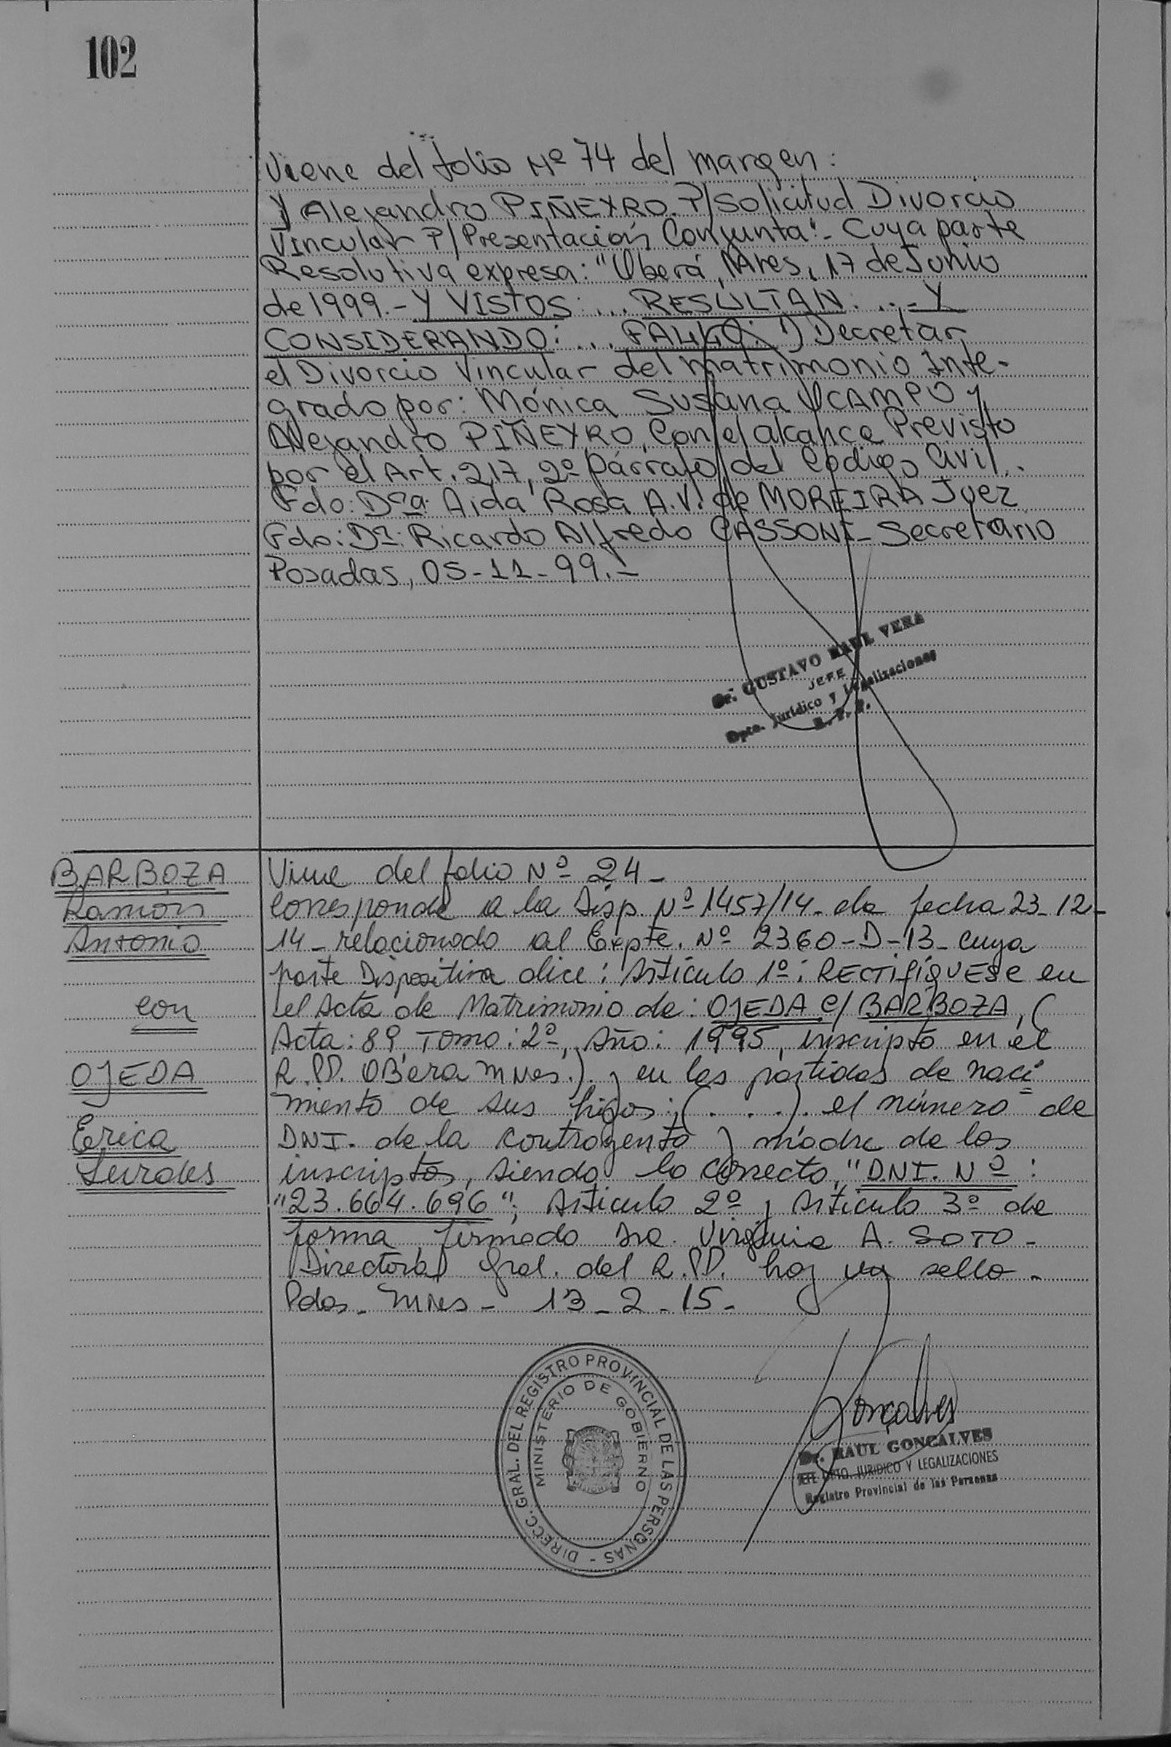 102
Viene del folio Nº 74 del margen:
y Alejandro PIÑEYRO. P/Solicitud Divorcio
Vincular P/Presentación Conjunta".- Cuya parte
Resolutiva expresa: "Oberá, Mnes, 17 de Junio
de 1999.- Y VISTOS: ... RESULTAN: ...- Y
CONSIDERANDO: ... FALLO: 1) Decretar
el Divorcio Vincular del matrimonio Inte-
grado por: Mónica Susana OCAMPO y
Alejandro PIÑEYRO, Con el alcance Previsto
por el Art. 217, 2º Párrafo del Código Civil..
Fdo: Dra. Aida Rosa A.V. de MOREIRA Juez
Fdo: Dr: Ricardo Alfredo CASSONI- Secretario
Posadas, 05-11-99.-
Dr. GUSTAVO RAUL VERA
JEFE
Dpto. Jurídico y Legalizaciones
R. P. P.
BARBOZA
Ramón
Antonio
con
OJEDA
Erica
Lurdes
Viene del folio Nº 24-
Corresponde a la Disp. Nº 1457/14- de fecha 23-12-
14- relacionado al Expte. Nº 2360-D-13- cuya
parte Dispositiva dice: Artículo 1º: RECTIFIQUESE en
el Acta de Matrimonio de: OJEDA c/ BARBOZA, (
Acta: 89, Tomo: 2º, Año: 1995, inscripto en el
R.PP. OBera Mnes.). y en las partidas de naci=
miento de sus hijos; (. . .). el número de
DNI. de la contrayente y madre de los
inscriptos, siendo lo correcto, "DNI. Nº :
"23.664.696"; Artículo 2º y Artículo 3º de
forma firmado Dra. Virginia A. SOTO-
Directora Gral. del R.PP. hay un sello-
Pdas- Mnes- 13-2-15-
DIRECC. GRAL. DEL REGISTRO PROVINCIAL DE LAS PERSONAS -
MINISTERIO DE GOBIERNO
Gonçalves
Dr. RAUL GONCALVES
JEFE DPTO. JURIDICO Y LEGALIZACIONES
Registro Provincial de las Personas